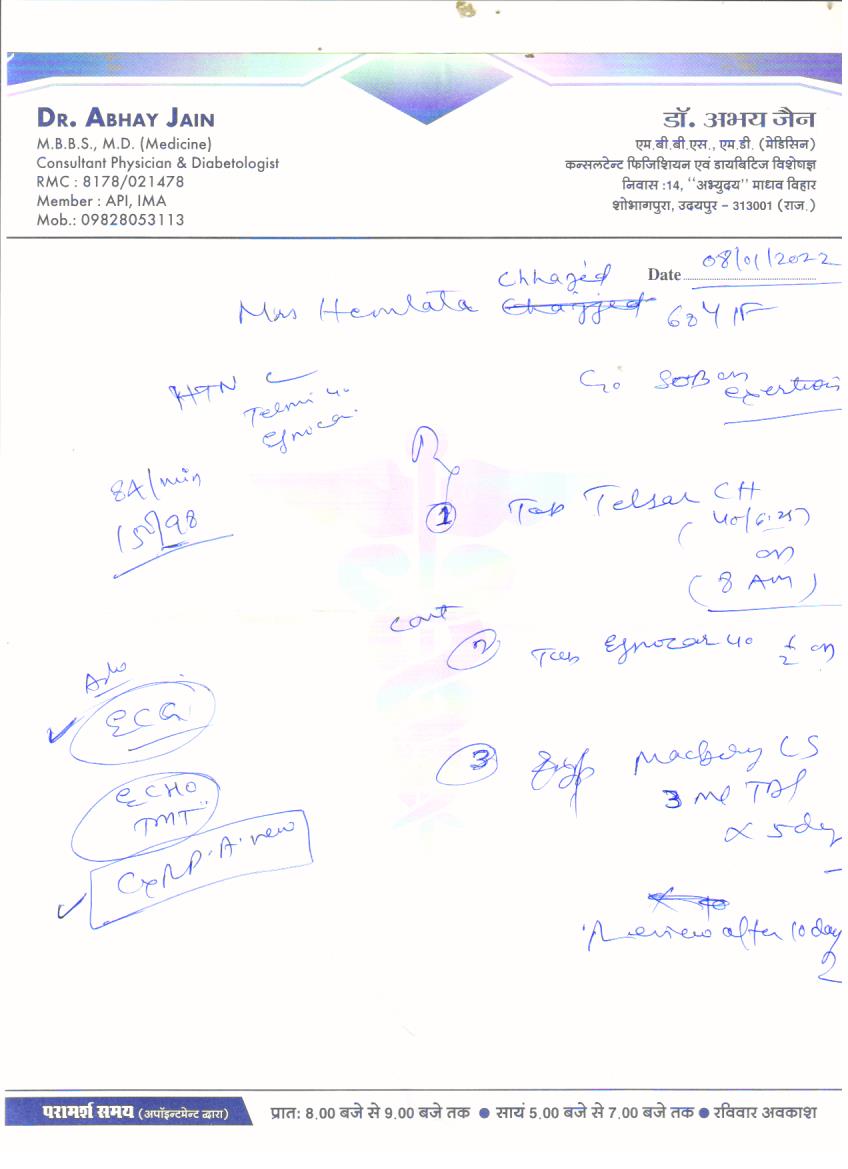 DR. ABHAY JAIN
M.B.B.S., M.D. (Medicine)
Consultant Physician & Diabetologist
RMC : 8178/021478
Member : API, IMA
Mob.: 09828053113
डॉ. अभय जैन
एम.बी.बी.एस., एम.डी. (मेडिसिन)
कन्सलटेन्ट फिजिशियन एवं डायबिटिज विशेषज्ञ
निवास :14, ‘‘अभ्युदय’’ माधव विहार
शोभागपुरा, उदयपुर – 313001 (राज.)
Date 08/01/2022
Chhajed
Mrs Hemlata
HTN
Telmi 40
C/o SOB on
exertion
84/min
Tab Telsar CH
(40/6.25)
on
(8 AM)
cont
Adv
ECG
ECHO
TMT
1
2
Tab 40 1/2 on
3
Syp CS
3 ml TDS
x 5 day
Review after 10 day
परामर्श समय (अपॉइन्टमेन्ट द्वारा)
प्रातः 8.00 बजे से 9.00 बजे तक ● सायं 5.00 बजे से 7.00 बजे तक ● रविवार अवकाश